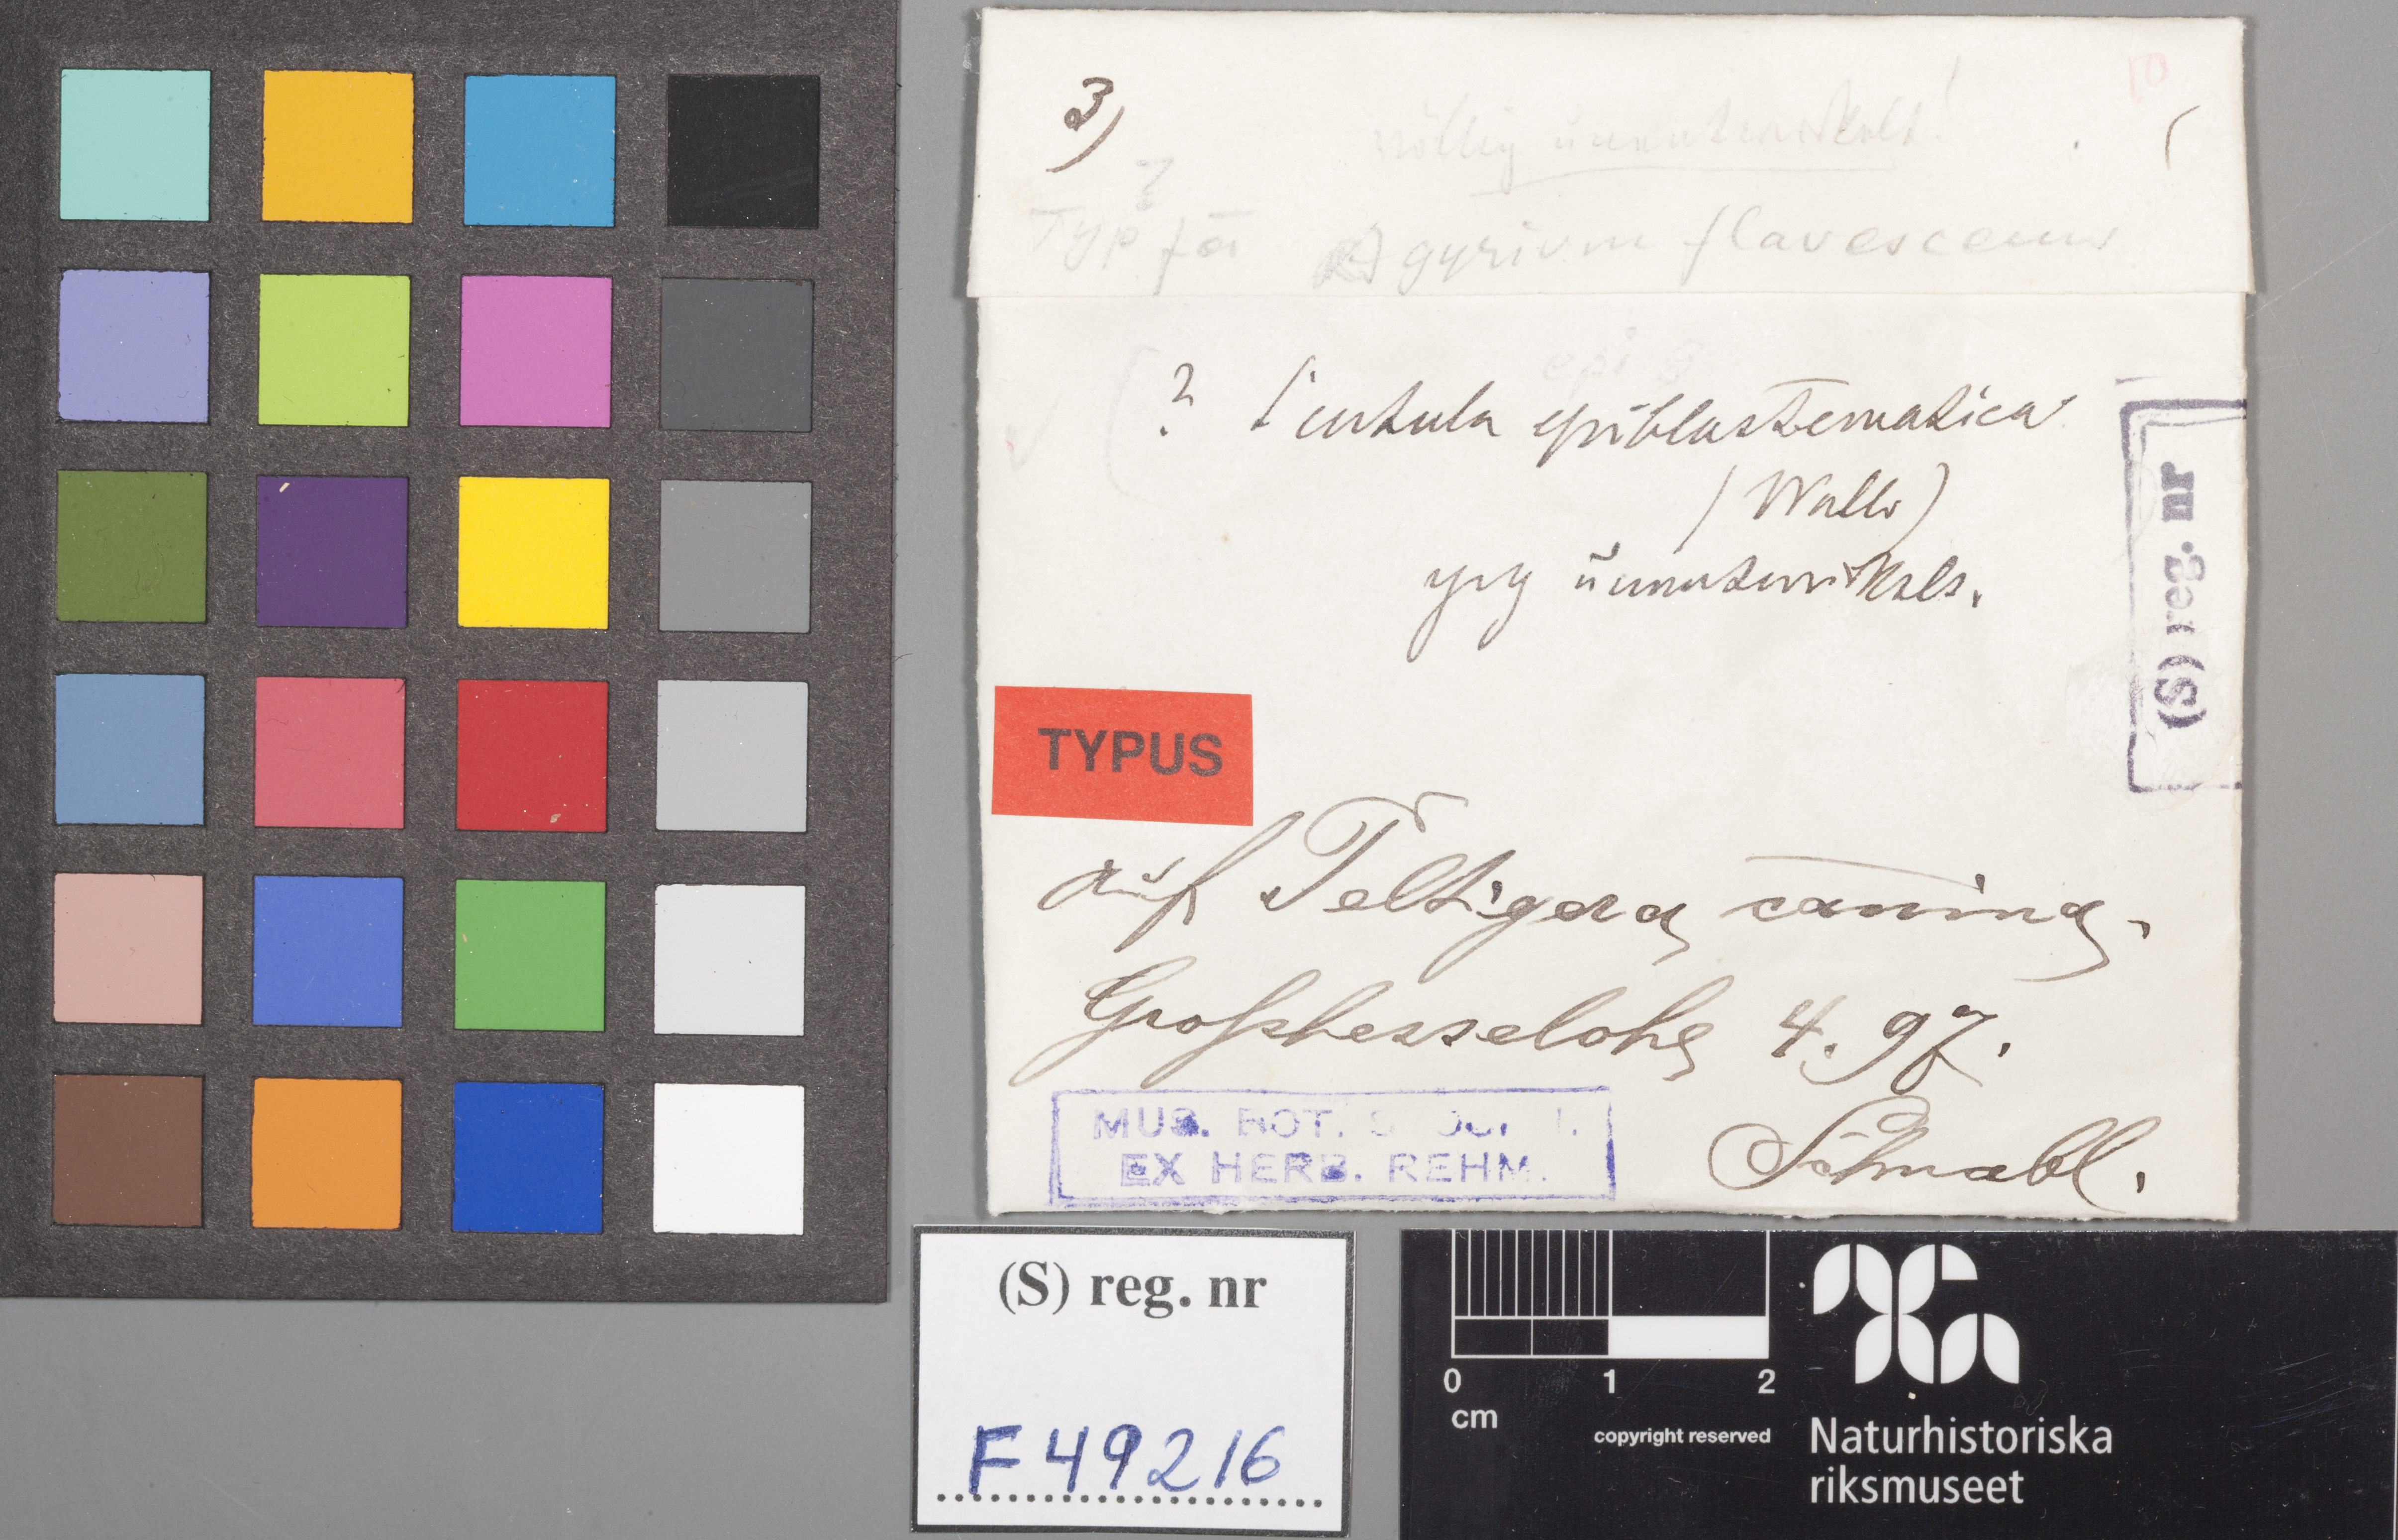 3)
10
völlig unentwickelt!
?
Typ för Agyrium flavescens
epi
? Pustula epiblastematica
(Wallr)
unentwickelt.
(S) reg. nr
TYPUS
auf Peltigera canina.
Großhesselohe 4. 97.
Schnabl.
MUS. BOT.
EX HERB. REHM.
(S) reg. nr
F49216
0 1 2
cm
copyright reserved
Naturhistoriska
riksmuseet